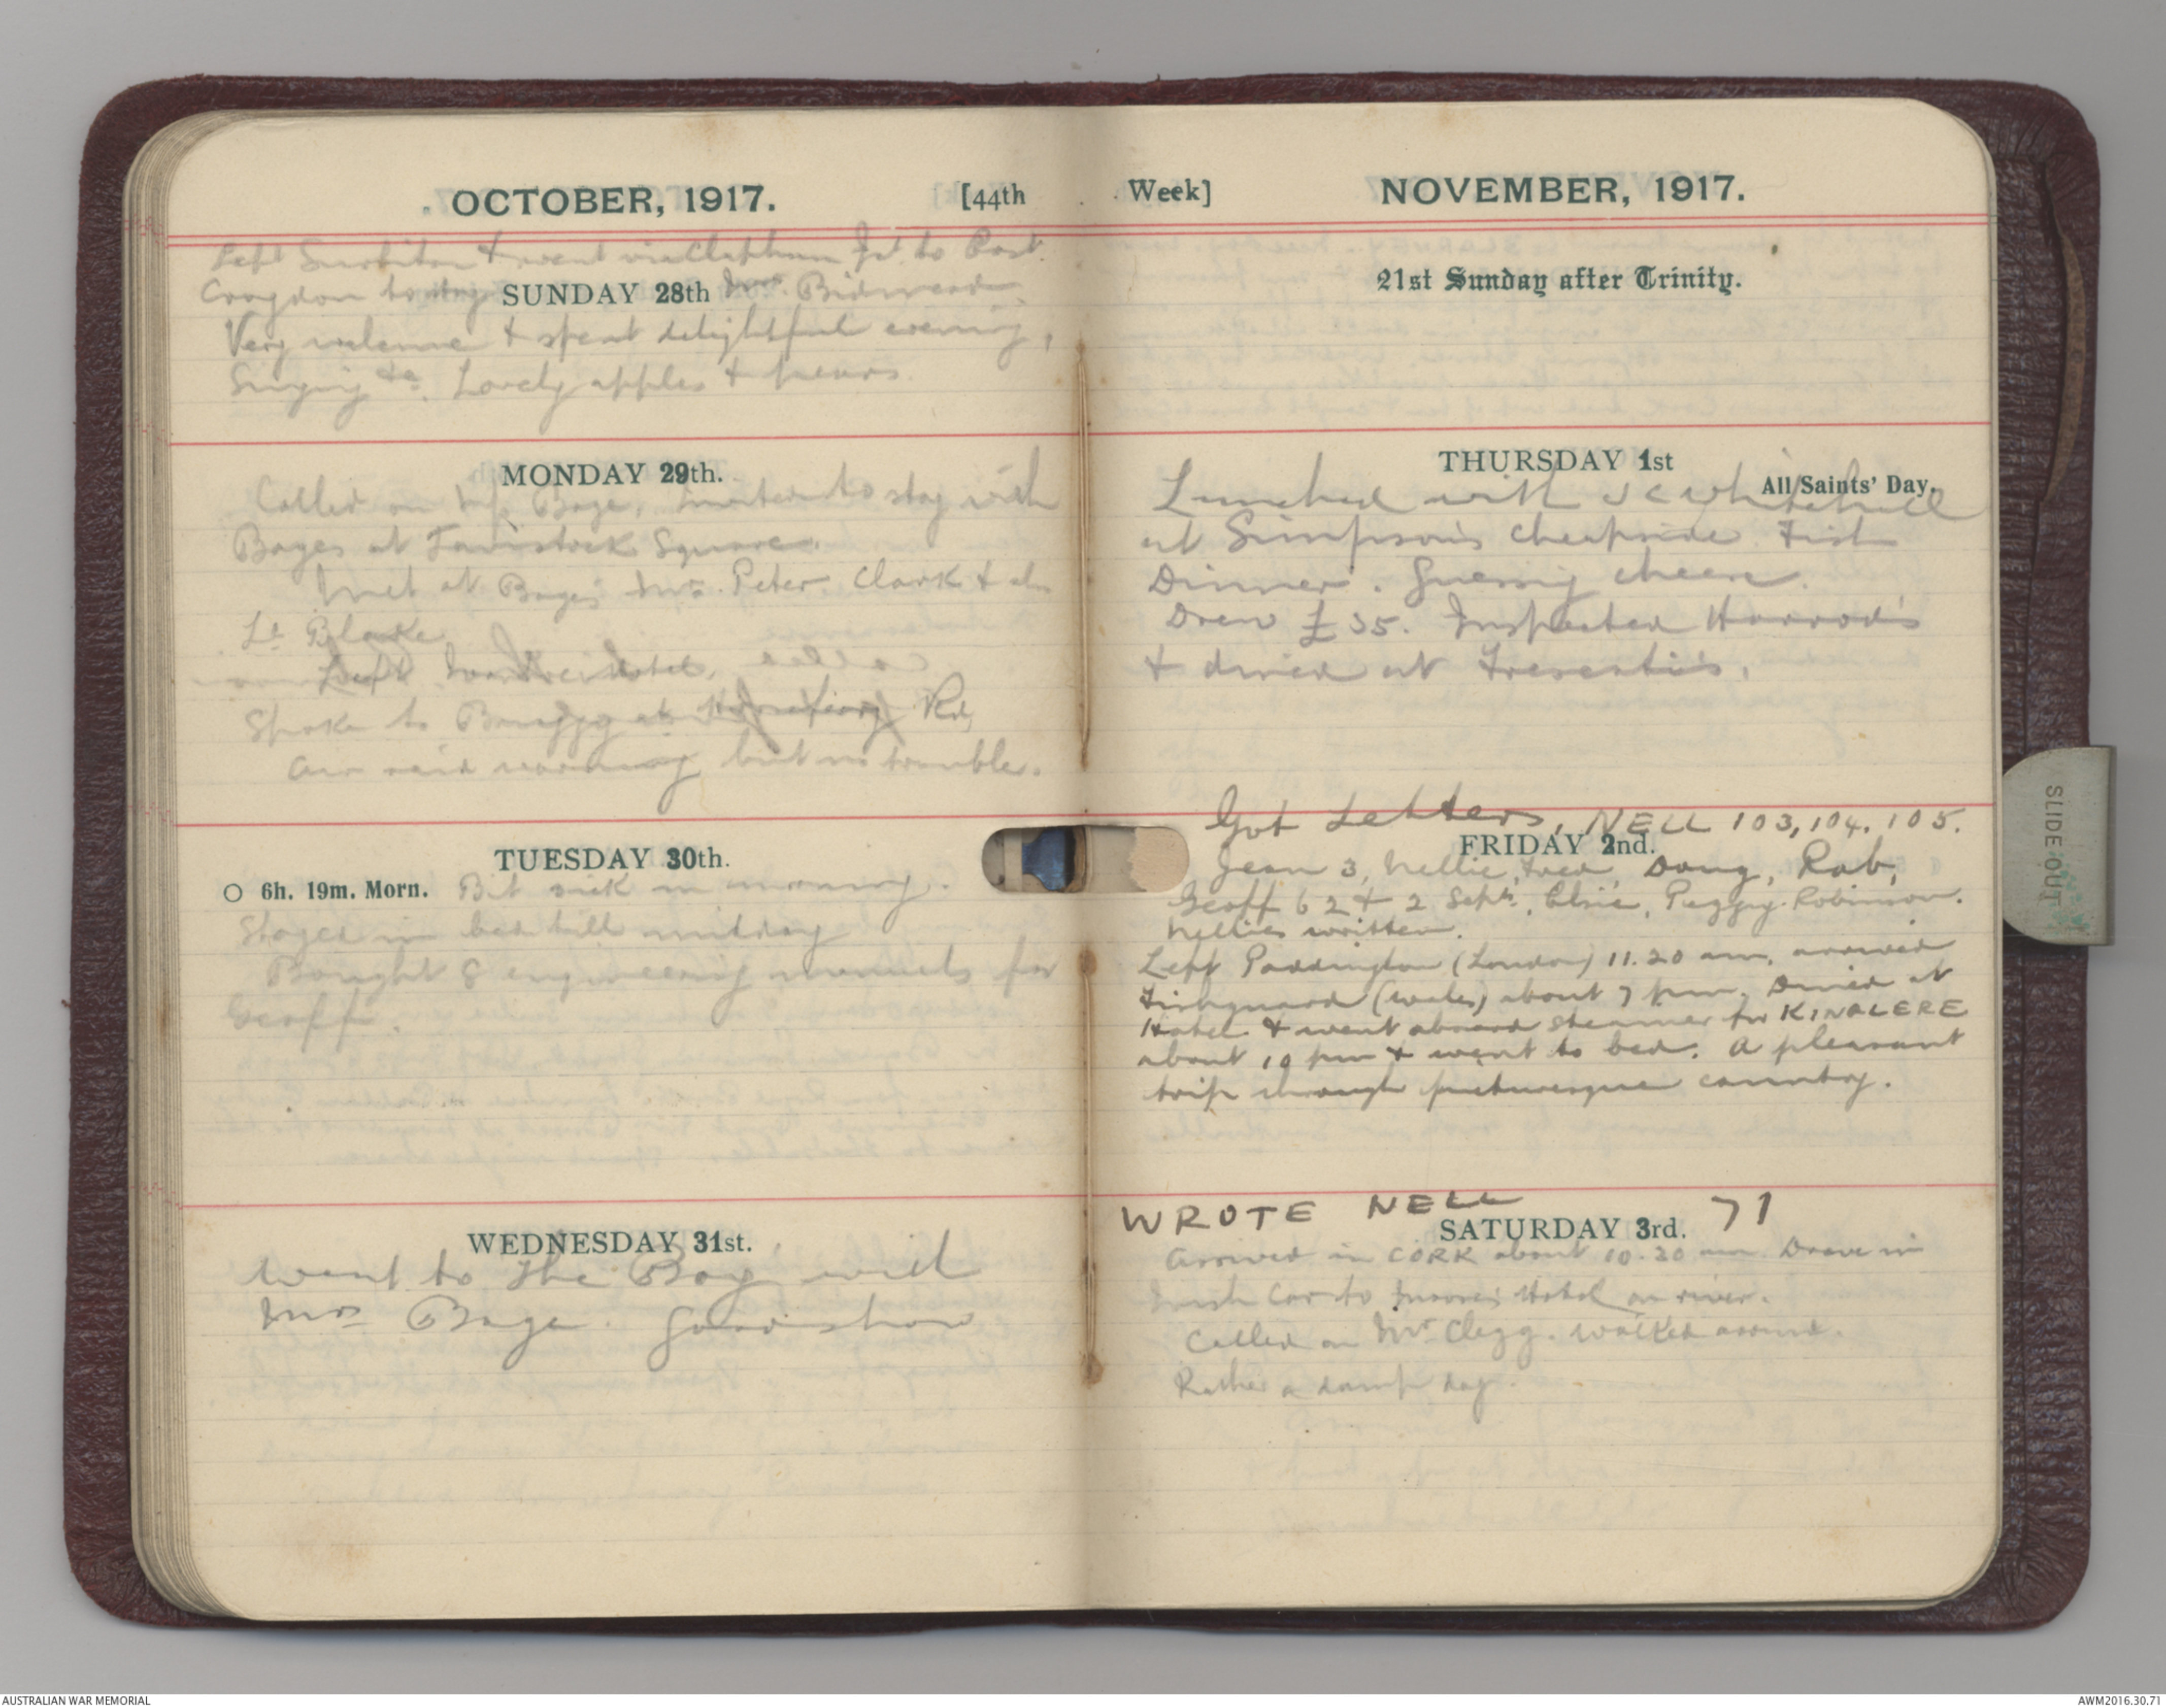 OCTOBER, 1917. [44th
Left Surbiton & went via Clapham Jct. to East
Croydon to stay Mrs. Bidmead
SUNDAY 28th
Very welcome & spent delightful evening,
Singing &c. Lovely apples & pears.
MONDAY 29th.
Called on Mrs Bage, invited to stay with
Bages at Tavistock Square.
Met at Bages Mrs. Peter Clark & also
Lt Blake
Left Hotel.
Spoke to at Rd,
Air raid warning but no trouble.
TUESDAY 30th.
6h. 19m. Morn. Bit sick in morning.
Stayed in bed till midday
Bought 8 engineering manuals for
Geoff.
WEDNESDAY 31st.
Went to The Boy with
Mrs Bage. Good show
Week] NOVEMBER, 1917.
21st Sunday after Trinity.
THURSDAY 1st
All Saints' Day.
Lunched with J C Whitehill
at Simpson's Cheapside Fish
Dinner. Guessing cheese.
Drew £35. Inspected Harrod's
& dined at
Got Letters, NELL 103, 104, 105.
FRIDAY 2nd.
Jean 3, Nellie, Fred, Doug, Rob,
Geoff 62 & 2 Sept., Elsie, Peggy Robinson.
Nellies written.
Left Paddington (London) 11.20 am, arrived
Fishguard (Wales) about 7 pm. Dined at
Hotel & went aboard steamer for KINGLERE
about 10 pm & went to bed. A pleasant
trip through picturesque country.
WROTE NELL 71
SATURDAY 3rd.
Arrived in CORK about 10.30 am Drove in
Irish Car to Moore's Hotel on river.
Called on Mr Clegg. Walked around.
Rather a damp day.
SLIDE OUT
AUSTRALIAN WAR MEMORIAL
AWM2016.30.71